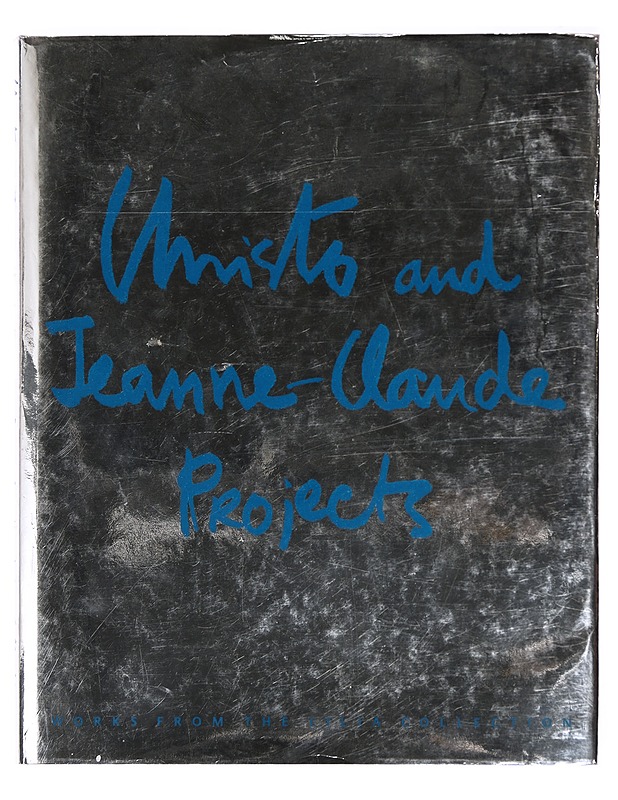 Christo and
Jeanne-Claude
Projects
WORKS FROM THE LILJA COLLECTION